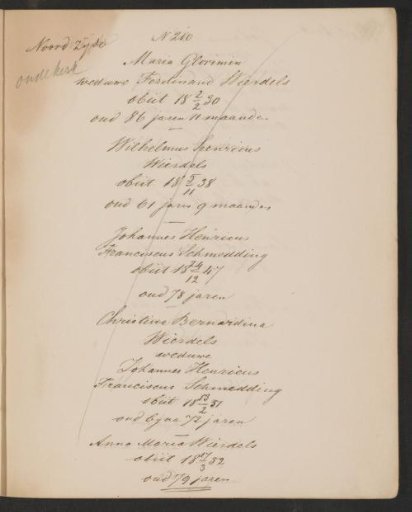 Noord Zijde
N 210
oude kerk
Maria
weduwe Ferdinand Wierdels
obiit 18 2/2 30
oud 86 jaren 11 maanden
Wilhelmus Henricus
Wierdels
obiit 18 /11 38
oud 61 jaren 9 maanden
Johannes Henricus
Franciscus Schmedding
obiit 18 24/12 47
oud 78 jaren
Christina Bernardina
Wierdels
weduwe
Johannes Henricus
Franciscus Schmedding
obiit 18 /2 51
oud bijna 72 jaren
Anna Maria Wierdels
obiit 18 /3 52
oud 79 jaren